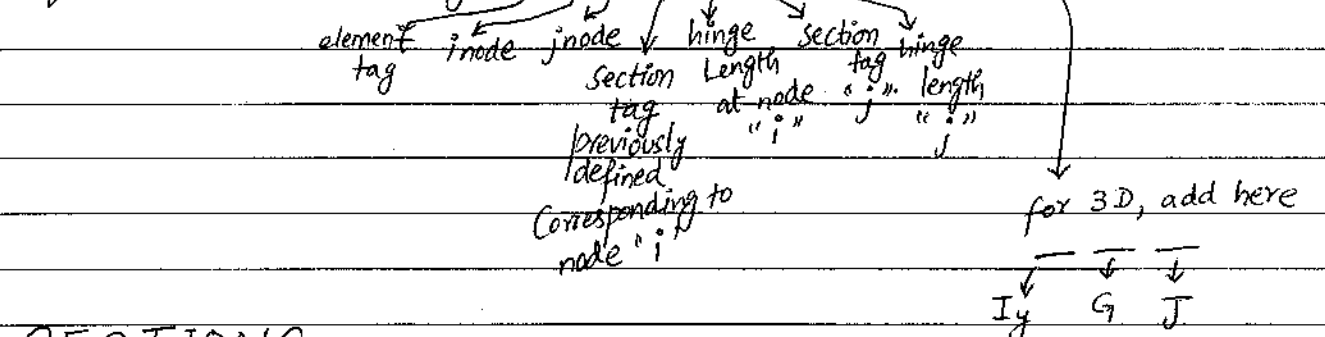 element tag
inode
jnode
section tag previously defined Corresponding to node "i"
hinge Length at node "i"
section tag "j"
hinge length "j"
for 3D, add here
Iy G J
SECTIONS